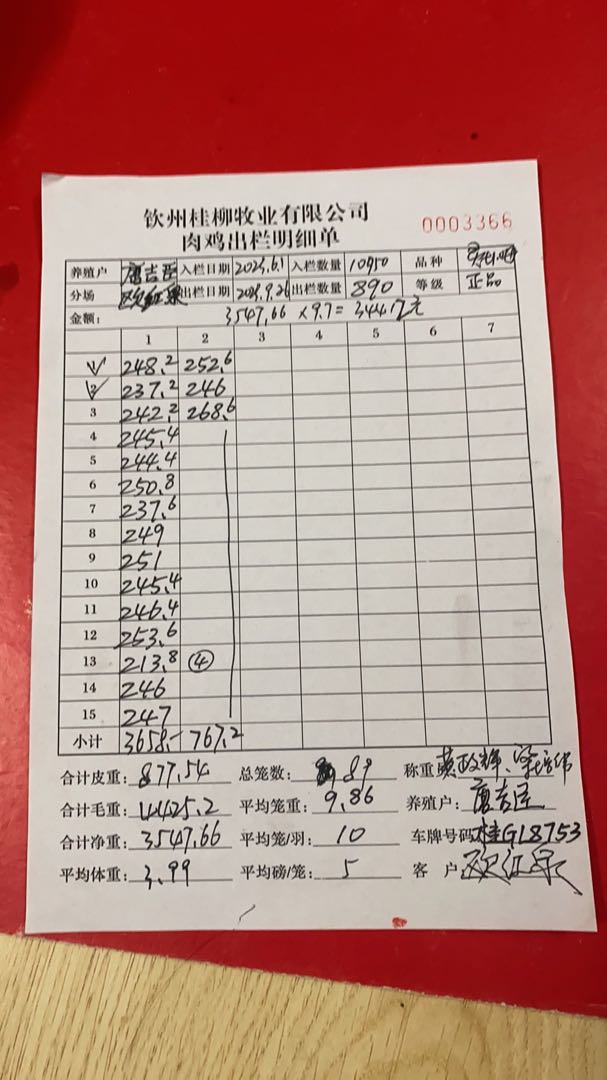 钦州桂柳牧业有限公司
肉鸡出栏明细单
0003366
养殖户 唐吉臣 入栏日期 2025.6.1 入栏数量 10950 品种
分场 欧红泉 出栏日期 2025.9.26 出栏数量 890 等级 正品
金额: 3547.66 ×9.7= 34417元
1 2 3 4 5 6 7
1 248.2 252.6
2 237.2 246
3 242.2 268.6
4 245.4
5 244.4
6 250.8
7 237.6
8 249
9 251
10 245.4
11 246.4
12 253.6
13 213.8 ④
14 246
15 247
小计 3658.- 767.2
合计皮重: 877.54 总笼数: 89 称重
合计毛重: 4425.2 平均笼重: 9.86 养殖户: 唐吉臣
合计净重: 3547.66 平均笼/羽: 10 车牌号码 桂G18753
平均体重: 3.99 平均磅/笼: 5 客户 欧红泉